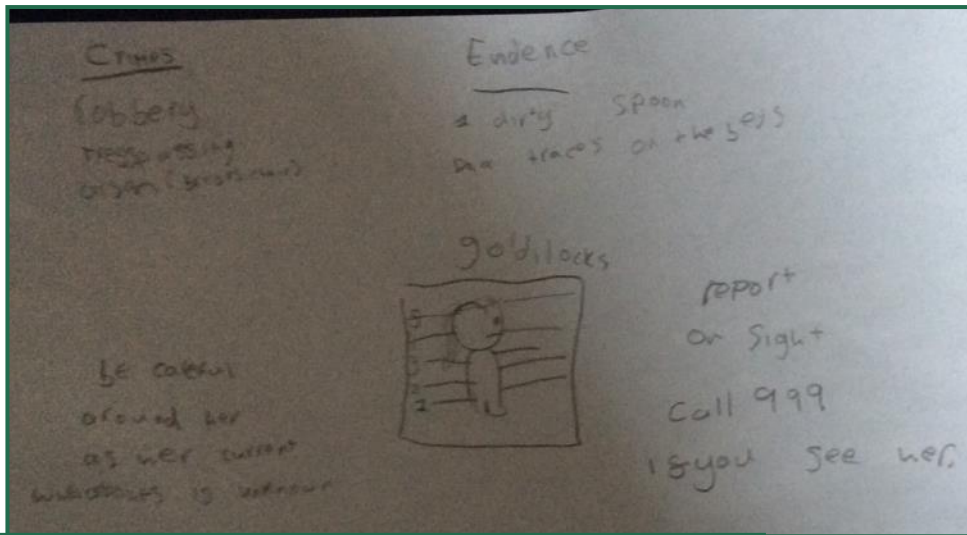 Crimes
robbery
tresspassing
arson (
Evidence
1 dirty spoon
Dna traces on the beds
goldilocks
5
4
3
2
1
be careful
around her
as her current
whereabouts is unknown
report
on sight
Call 999
if you see her.